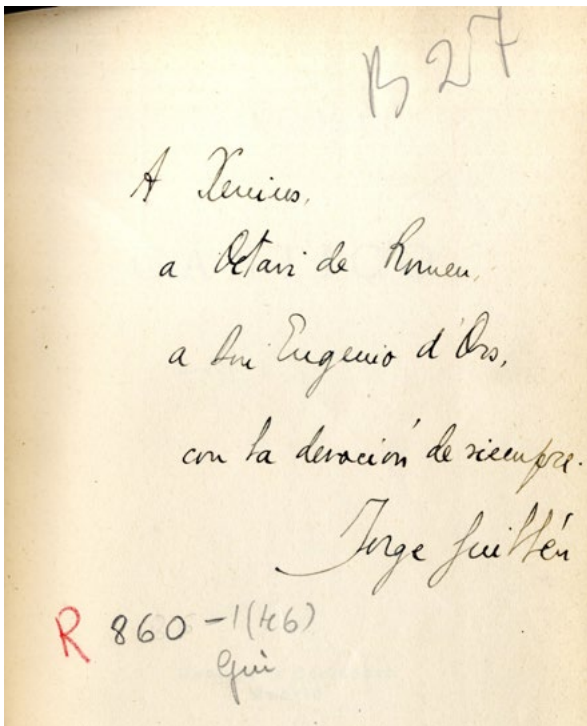 B 27
A Xenius,
a Octavi de Romeu,
a Don Eugenio d'Ors,
con la devoción de siempre.
Jorge Guillén
R 860-1(46)
Gui